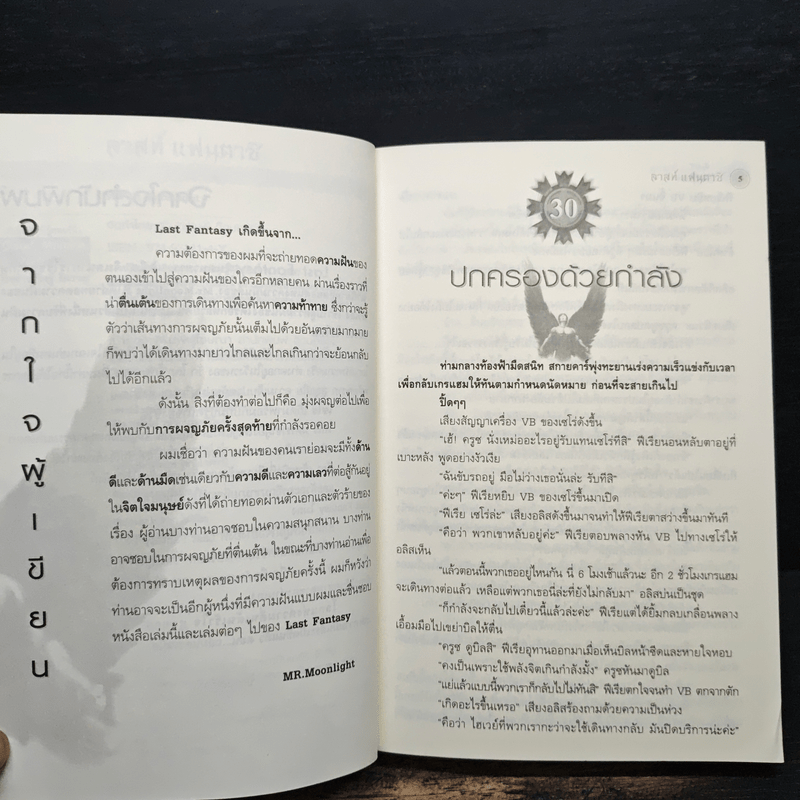 จากใจผู้เขียน
Last Fantasy เกิดขึ้นจาก...
ความต้องการของผมที่จะถ่ายทอดความฝันของ
ตนเองเข้าไปสู่ความฝันของใครอีกหลายคน ผ่านเรื่องราวที่
น่าตื่นเต้นของการเดินทางเพื่อค้นหาความท้าทาย ซึ่งกว่าจะรู้
ตัวว่าเส้นทางการผจญภัยนั้นเต็มไปด้วยอันตรายมากมาย
ก็พบว่าได้เดินทางมายาวไกลและไกลเกินกว่าจะย้อนกลับ
ไปได้อีกแล้ว
ดังนั้น สิ่งที่ต้องทำต่อไปก็คือ มุ่งผจญต่อไปเพื่อ
ให้พบกับการผจญภัยครั้งสุดท้ายที่กำลังรอคอย
ผมเชื่อว่า ความฝันของคนเราย่อมจะมีทั้งด้าน
ดีและด้านมืดเช่นเดียวกับความดีและความเลวที่ต่อสู้กันอยู่
ในจิตใจมนุษย์ดังที่ได้ถ่ายทอดผ่านตัวเอกและตัวร้ายของ
เรื่อง ผู้อ่านบางท่านอาจชอบในความสนุกสนาน บางท่าน
อาจชอบในการผจญภัยที่ตื่นเต้น ในขณะที่บางท่านอ่านเพื่อ
ต้องการทราบเหตุผลของการผจญภัยครั้งนี้ ผมก็หวังว่า
ท่านอาจจะเป็นอีกผู้หนึ่งที่มีความฝันแบบผมและชื่นชอบ
หนังสือเล่มนี้และเล่มต่อๆ ไปของ Last Fantasy
MR.Moonlight
5
30
ปกครองด้วยกำลัง
ท่ามกลางท้องฟ้ามืดสนิท สกายคาร์พุ่งทะยานเร่งความเร็วแข่งกับเวลา
เพื่อกลับเกรแฮมให้ทันตามกำหนดนัดหมาย ก่อนที่จะสายเกินไป
ปิ๊ดๆๆ
เสียงสัญญาเครื่อง VB ของเซโร่ดังขึ้น
"เฮ้! ครูซ นั่งเหม่ออะไรอยู่รับแทนเซโร่ทีสิ" ฟีเรียนอนหลับตาอยู่ที่
เบาะหลัง พูดอย่างงัวเงีย
"ฉันขับรถอยู่ มือไม่ว่างเธอนั่นล่ะ รับทีสิ"
"ค่ะๆ" ฟีเรียหยิบ VB ของเซโร่ขึ้นมาเปิด
"ฟีเรีย เซโร่ล่ะ" เสียงอลิสดังขึ้นมาจนทำให้ฟีเรียตาสว่างขึ้นมาทันที
"คือว่า พวกเขาหลับอยู่ค่ะ" ฟีเรียตอบพลางหัน VB ไปทางเซโร่ให้
อลิสเห็น
"แล้วตอนนี้พวกเธออยู่ไหนกัน นี่ 6 โมงเช้าแล้วนะ อีก 2 ชั่วโมงเกรแฮม
จะเดินทางต่อแล้ว เหลือแต่พวกเธอนี่ล่ะที่ยังไม่กลับมา" อลิสบ่นเป็นชุด
"ก็กำลังจะกลับไปเดี๋ยวนี้แล้วล่ะค่ะ" ฟีเรียแต่ได้ยิ้มกลบเกลื่อนพลาง
เอื้อมมือไปเขย่าบิลให้ตื่น
"ครูซ ดูบิลสิ" ฟีเรียอุทานออกมาเมื่อเห็นบิลหน้าซีดและหายใจหอบ
"คงเป็นเพราะใช้พลังจิตเกินกำลังมั้ง" ครูซหันมาดูบิล
"แย่แล้วแบบนี้พวกเราก็กลับไปไม่ทันสิ" ฟีเรียตกใจจนทำ VB ตกจากตัก
"เกิดอะไรขึ้นเหรอ" เสียงอลิสร้องถามด้วยความเป็นห่วง
"คือว่า ไฮเวย์ที่พวกเรากะว่าจะใช้เดินทางกลับ มันปิดบริการน่ะค่ะ"